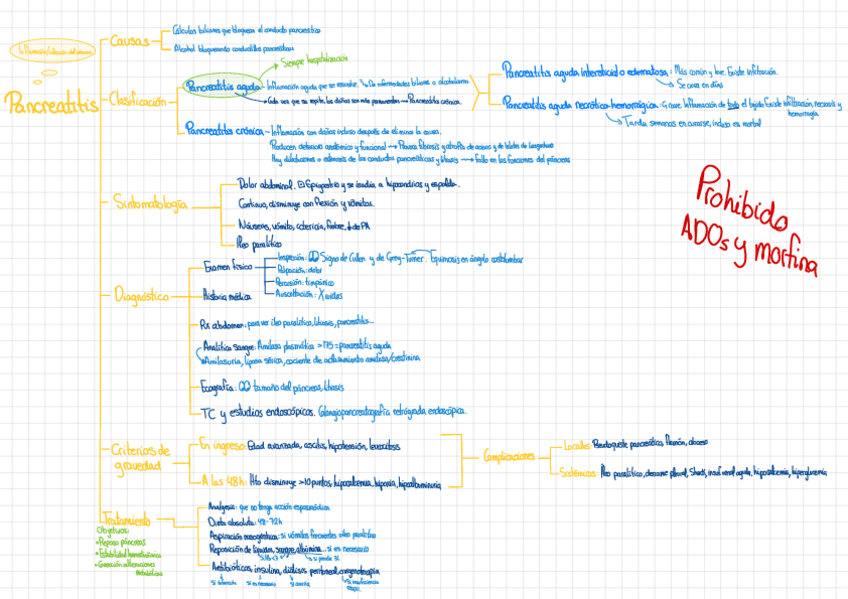 Inflamación/infección del páncreas
Pancreatitis
Causas
Cálculos biliares que bloquean el conducto pancreático
Alcohol bloqueando conductillos pancreáticos
Clasificación
Siempre hospitalización
Pancreatitis aguda
Inflamación aguda que se resuelve. De enfermedades biliares o alcoholismo
Cada vez que se repite, los daños son más permanentes → Pancreatitis crónica.
Pancreatitis aguda intersticial o edematosa: Más común y leve. Existe infiltración.
Se cura en días
Pancreatitis aguda necrótica-hemorrágica: Grave. Inflamación de todo el tejido. Existe infiltración, necrosis y hemorragia
Tarda semanas en curarse, incluso es mortal
Pancreatitis crónica
Inflamación con daños incluso después de eliminar la causa.
Producen deterioro anatómico y funcional → fibrosis y atrofia de acinos y de islotes de Langerhans
Hay dilataciones o estenosis de los conductos pancreáticos y litiasis → Fallo en las funciones del páncreas
Prohibido
ADOs y morfina
Sintomatología
Dolor abdominal. Epigastrio y se irradia a hipocondrios y espalda.
Continuo, disminuye con flexión y vómitos.
Náuseas, vómito, ictericia, fiebre, ↓ de PA
Íleo paralítico
Diagnóstico
Examen físico
Inspección: Signo de Cullen y de Grey-Turner. Equimosis en ángulo costolumbar
Palpación: dolor
Percusión: timpánico
Auscultación: X ruidos
Historia médica
Rx abdomen: para ver íleo paralítico, litiasis, pancreatitis...
Analítica sangre: Amilasa plasmática >175 = pancreatitis aguda
Amilasuria, lipasa sérica, cociente de aclaramiento amilasa/creatinina
Ecografía: tamaño del páncreas, litiasis
TC y estudios endoscópicos. Colangiopancreatografía retrógrada endoscópica.
Criterios de gravedad
En ingreso: Edad avanzada, ascitis, hipotensión, leucocitosis
A las 48h: Hto disminuye >10 puntos, hipocalcemia, hipoxia, hipoalbuminuria
Complicaciones
Locales: Pseudoquiste pancreático, flemón, absceso
Sistémicas: Íleo paralítico, derrame pleural, Shock, insuf renal aguda, hipocalcemia, hiperglucemia
Tratamiento
Objetivos:
• Reposo páncreas
• Estabilidad hemodinámica
• Corrección alteraciones metabólicas
Analgesia: que no tenga acción espasmódica
Dieta absoluta: 48-72h
Aspiración nasogástrica: si vómitos frecuentes o íleo paralítico
Reposición de líquidos, sangre, albúmina... si es necesario
Antibióticos, insulina, diálisis peritoneal, oxigenoterapia
si es necesario